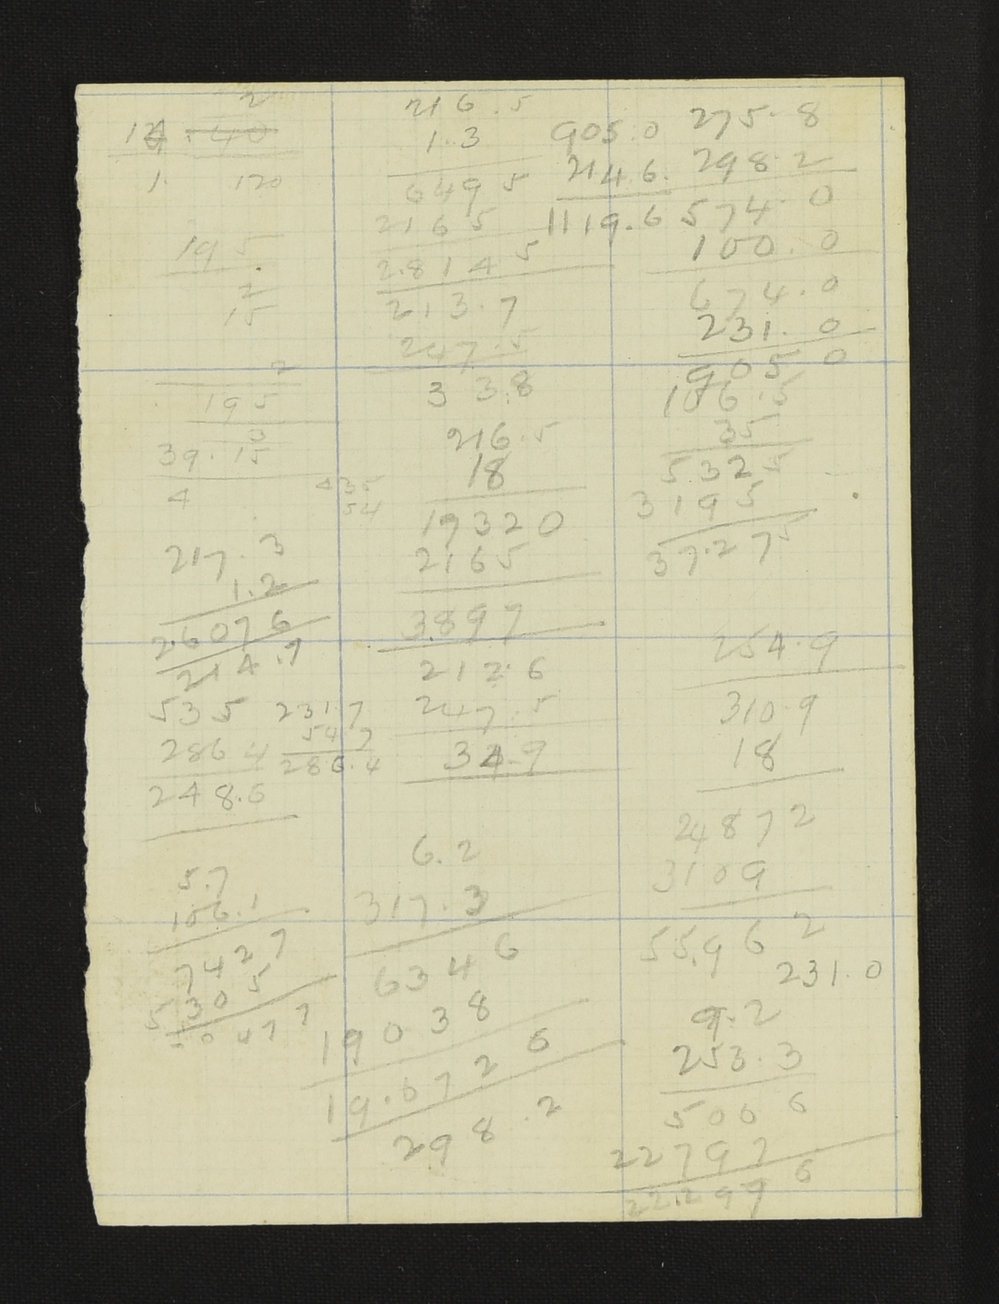 2
124 . 40
1. 120
195
2
15
2
195
3
39.15
4
435
54
217.3
1.2
2.6076
214.7
535
286 4
248.6
231.7
54.7
286.4
5.7
106.1
7427
5305
6.0477
216.5
1.3
6495
2165
2.8145
213.7
247.5
33.8
216.5
18
17320
2165
3.897
212.6
247.5
34.9
6.2
317.3
6346
19038
19.6726
298.2
905.0
214.6.
1119.6
275.8
298.2
574.0
100.0
674.0
231.0
905 0
106.5
35
5325
3195
37.275
254.9
310.9
18
24872
3109
55.962
231.0
9.2
253.3
5066
22797
22.2976